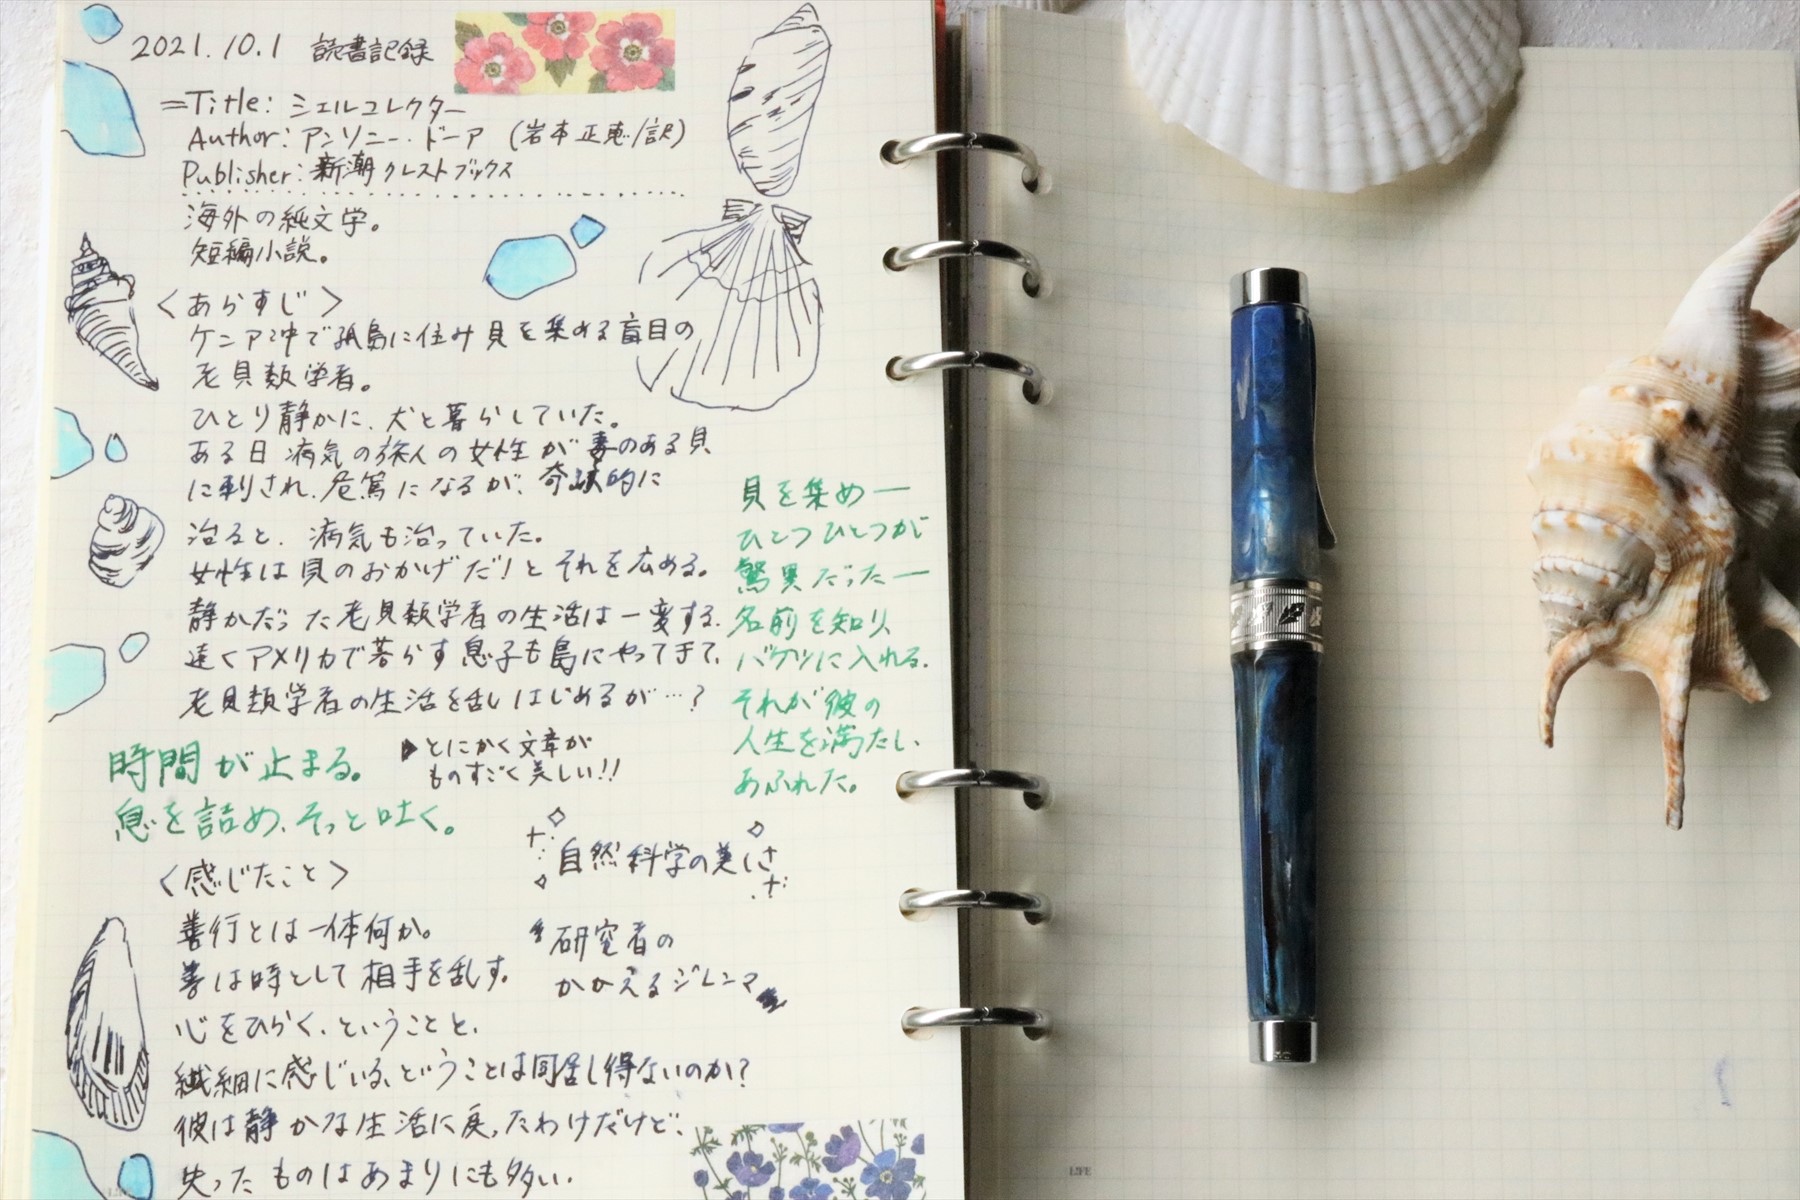 2021.10.1 読書記録
=Title: シェルコレクター
Author: アンソニー・ドーア (岩本正恵/訳)
Publisher: 新潮クレストブックス
海外の純文学。
短編小説。
〈あらすじ〉
ケニア沖で孤島に住み貝を集める盲目の
老貝類学者。
ひとり静かに、犬と暮らしていた。
ある日病気の旅人の女性が毒のある貝
に刺され、危篤になるが、奇蹟的に
治ると、病気も治っていた。
女性は貝のおかげだ!とそれを広める。
静かだった老貝類学者の生活は一変する。
遠くアメリカで暮らす息子も島にやってきて、
老貝類学者の生活を乱しはじめるが…?
貝を集め―
ひとつひとつが
驚異だった―
名前を知り、
バケツに入れる。
それが彼の
人生を満たし、
あふれた。
時間が止まる。
息を詰め、そっと吐く。
とにかく文章が
ものすごく美しい!!
自然科学の美しさ
研究者の
かかえるジレンマ
〈感じたこと〉
善行とは一体何か。
善は時として相手を乱す。
心をひらく、ということと、
繊細に感じいる、ということは同居し得ないのか?
彼は静かな生活に戻ったわけだけど、
失ったものはあまりにも多い。
LIFE
LIFE